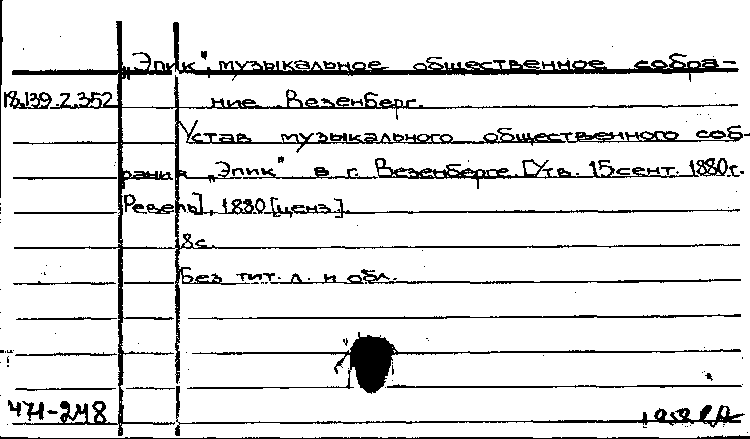 „Эпик", музыкальное общественное собра-
18.139.2.352
ние. Везенберг.
Устав музыкального общественного соб-
рания „Эпик" в г. Везенберге. [Утв. 15 сент. 1880г.
Ревель], 1880 [ценз.].
8с.
Без тит. л. и обл.
471-248